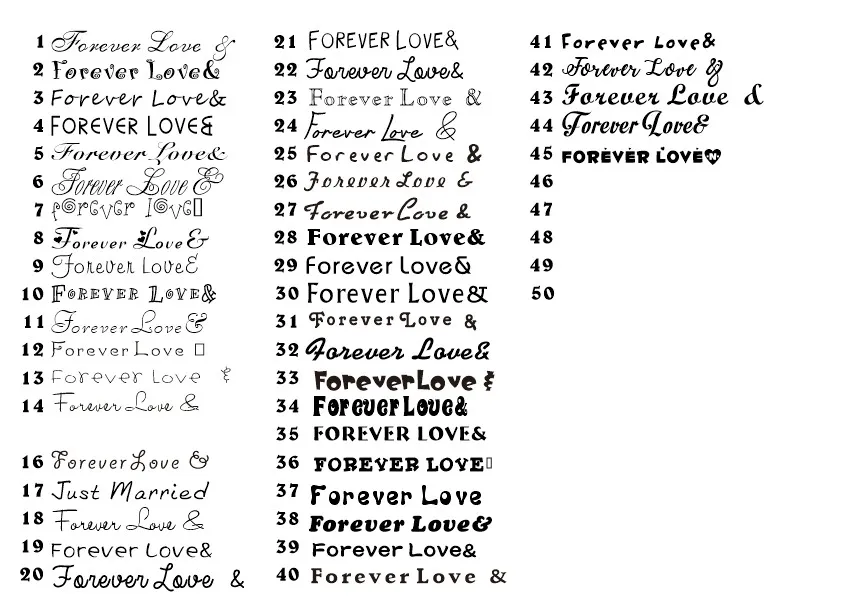 1 Forever Love &
2 Forever Love&
3 Forever Love&
4 FOREVER LOVE&
5 Forever Love&
6 Forever Love &
7 Forever love▯
8 Forever Love &
9 Forever Love&
10 FOREVER LOVE&
11 Forever Love &
12 Forever Love ▯
13 Forever Love &
14 Forever Love &
16 Forever Love &
17 Just Married
18 Forever Love &
19 Forever Love&
20 Forever Love &
21 FOREVER LOVE&
22 Forever Love&
23 Forever Love &
24 Forever Love &
25 Forever Love &
26 Forever Love &
27 Forever Love &
28 Forever Love&
29 Forever Love&
30 Forever Love&
31 Forever Love &
32 Forever Love&
33 Forever Love &
34 Forever Love&
35 FOREVER LOVE&
36 FOREVER LOVE▯
37 Forever Love
38 Forever Love&
39 Forever Love&
40 Forever Love &
41 Forever Love&
42 Forever Love &
43 Forever Love &
44 Forever Love&
45 FOREVER LOVE
46
47
48
49
50